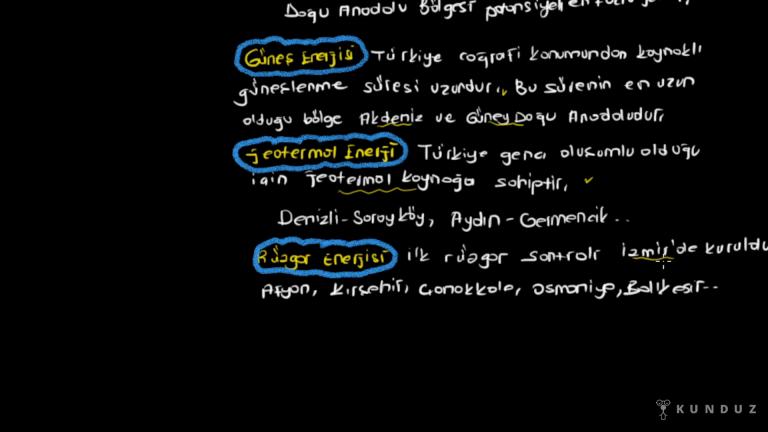 Doğu Anadolu Bölgesi potansiyeli en
Güneş Enerjisi Türkiye coğrafi konumundan kaynaklı
güneşlenme süresi uzundur. Bu sürenin en uzun
olduğu bölge Akdeniz ve Güney Doğu Anadoludur.
Jeotermal Enerji Türkiye genç oluşumlu olduğu
için jeotermal kaynağa sahiptir.
Denizli-Sarayköy, Aydın-Germencik..
Rüzgar Enerjisi ilk rüzgar santrali İzmir'de kuruldu
Afyon, Kırşehir, Çanakkale, Osmaniye, Balıkesir..
KUNDUZ